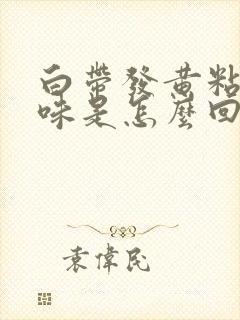 白帶發黃粘
味是怎麼回
袁偉民